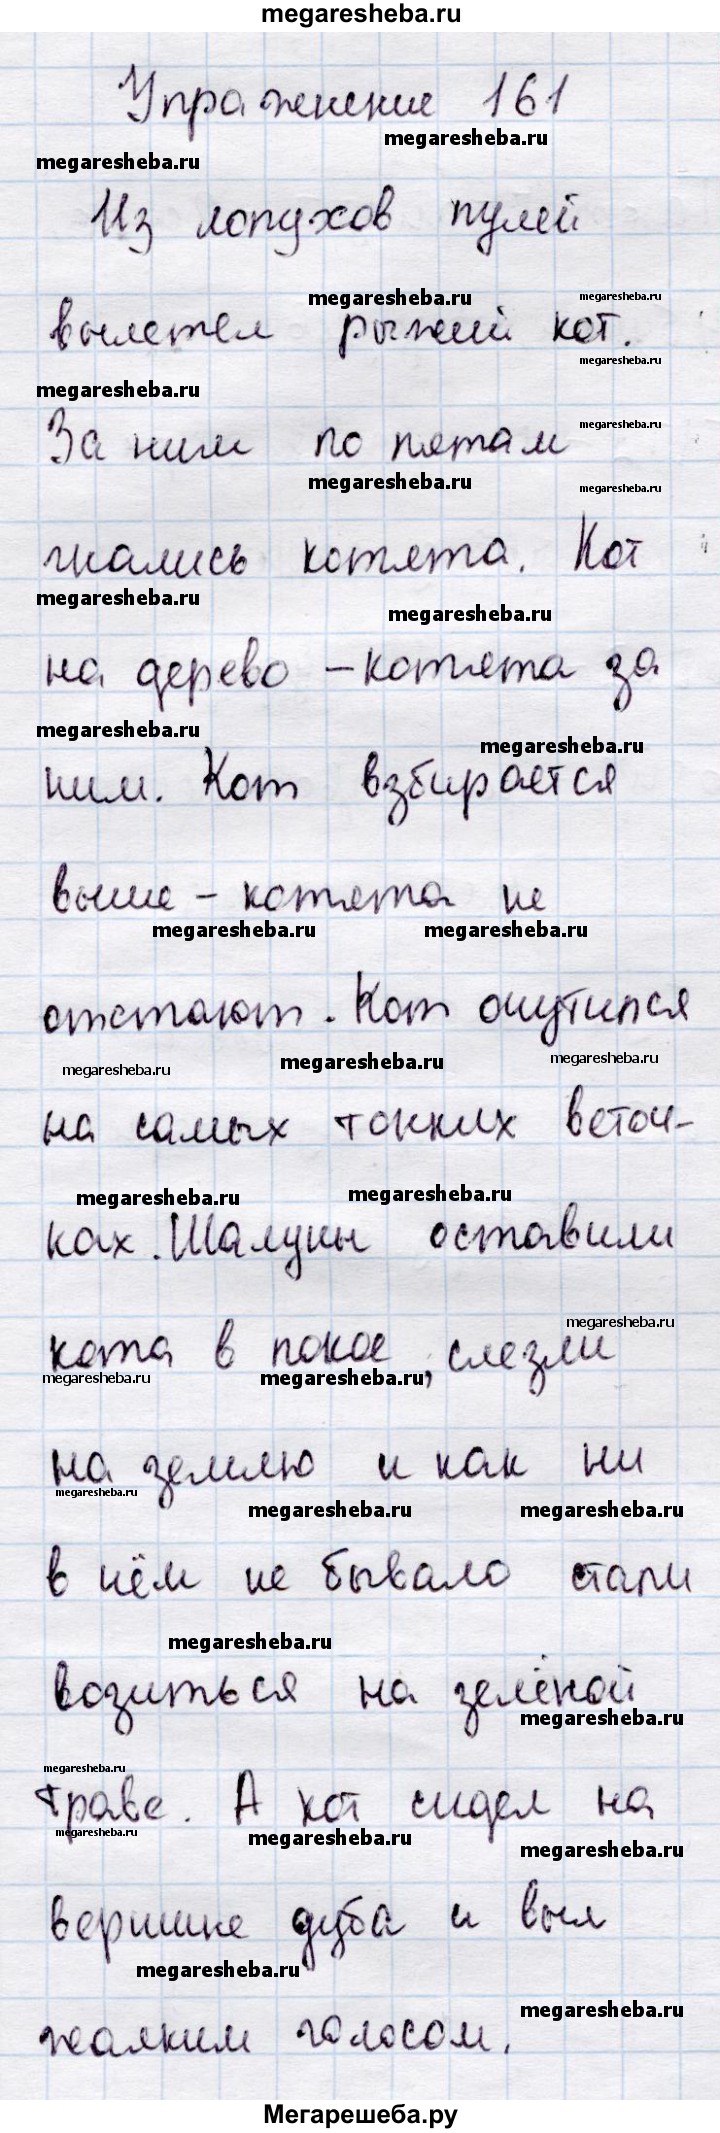 megaresheba.ru
Упражнение 161
megaresheba.ru
megaresheba.ru
Из лопухов пулей
megaresheba.ru megaresheba.ru
вылетел рыжий кот.
megaresheba.ru
megaresheba.ru
За ним по пятам
megaresheba.ru
megaresheba.ru megaresheba.ru
гнались котята. Кот
megaresheba.ru
megaresheba.ru
на дерево – котята за
megaresheba.ru
megaresheba.ru
ним. Кот взбирается
выше – котята не
megaresheba.ru megaresheba.ru
отстают. Кот очутился
megaresheba.ru megaresheba.ru megaresheba.ru
на самых тонких веточ-
megaresheba.ru megaresheba.ru
ках. Шалуны оставили
megaresheba.ru
кота в покое, слезли
megaresheba.ru megaresheba.ru
на землю и как ни
megaresheba.ru
megaresheba.ru megaresheba.ru
в чём не бывало стали
megaresheba.ru
возиться на зелёной
megaresheba.ru
megaresheba.ru
траве. А кот сидел на
megaresheba.ru megaresheba.ru megaresheba.ru
вершине дуба и выл
megaresheba.ru
megaresheba.ru
жалким голосом.
Мегарешеба.ру